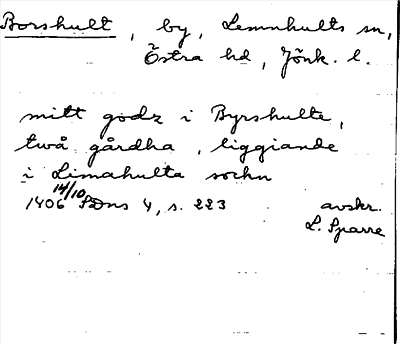 Borshult, by, Lemnhults sn,
Östra hd, Jönk. l.
mitt godz i Byrshulte,
två gårdha, liggiande
i Limahulta sochn
14/10
1406 SDns 4, s. 223 avskr.
L. Sparre